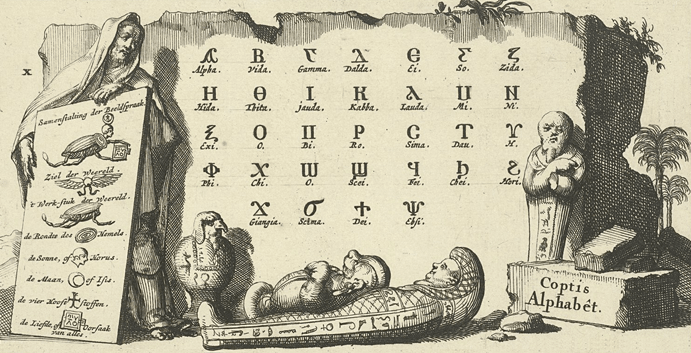 x
Samenstalting der Beeldspraak
Ziel der Weereld.
't Werk-stuk der Weereld.
de Rondte des Hemels
de Sonne, of Horus.
de Maan, of Isis.
de vier Hooft Stoffen.
de Liefde, of Oorsaak
van alles.
Ⲁ Ⲃ Ⲅ Ⲇ Ⲉ Ⲋ Ⲍ
Alpha. Vida. Gamma. Dalda. Ei. So. Zida.
Ⲏ Ⲑ Ⲓ Ⲕ Ⲗ Ⲙ Ⲛ
Hida. Thita. Jauda. Kabba. Lauda. Mi. Ni.
Ⲝ Ⲟ Ⲡ Ⲣ Ⲥ Ⲧ Ⲩ
Exi. O. Bi. Ro. Sima. Dau. H.
Ⲫ Ⲭ Ⲱ Ϣ Ϥ Ϧ Ϩ
Phi. Chi. O. Scei. Fei. Chei. Hori.
Ϫ Ϭ Ϯ Ⲯ
Giangia. Scima. Dei. Ebsi.
Coptis
Alphabét.